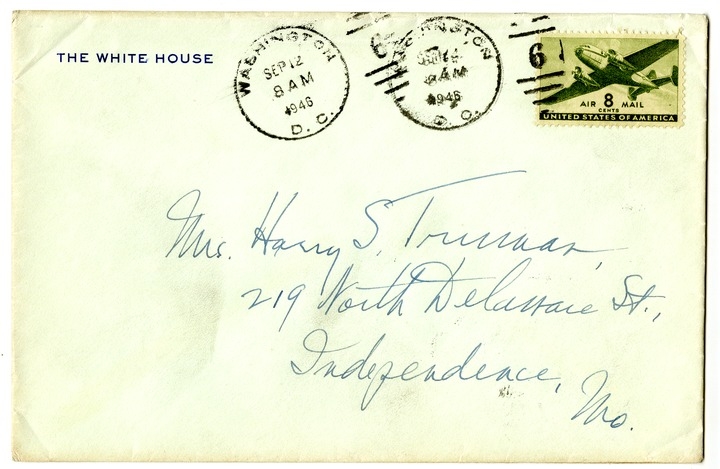 THE WHITE HOUSE
WASHINGTON
SEP 12
8 AM
1946
D. C.
WASHINGTON
AM
1946
D. C.
6
6
AIR 8 MAIL
CENTS
UNITED STATES OF AMERICA
Mrs. Harry S. Truman,
219 North Delaware St.,
Independence,
Mo.